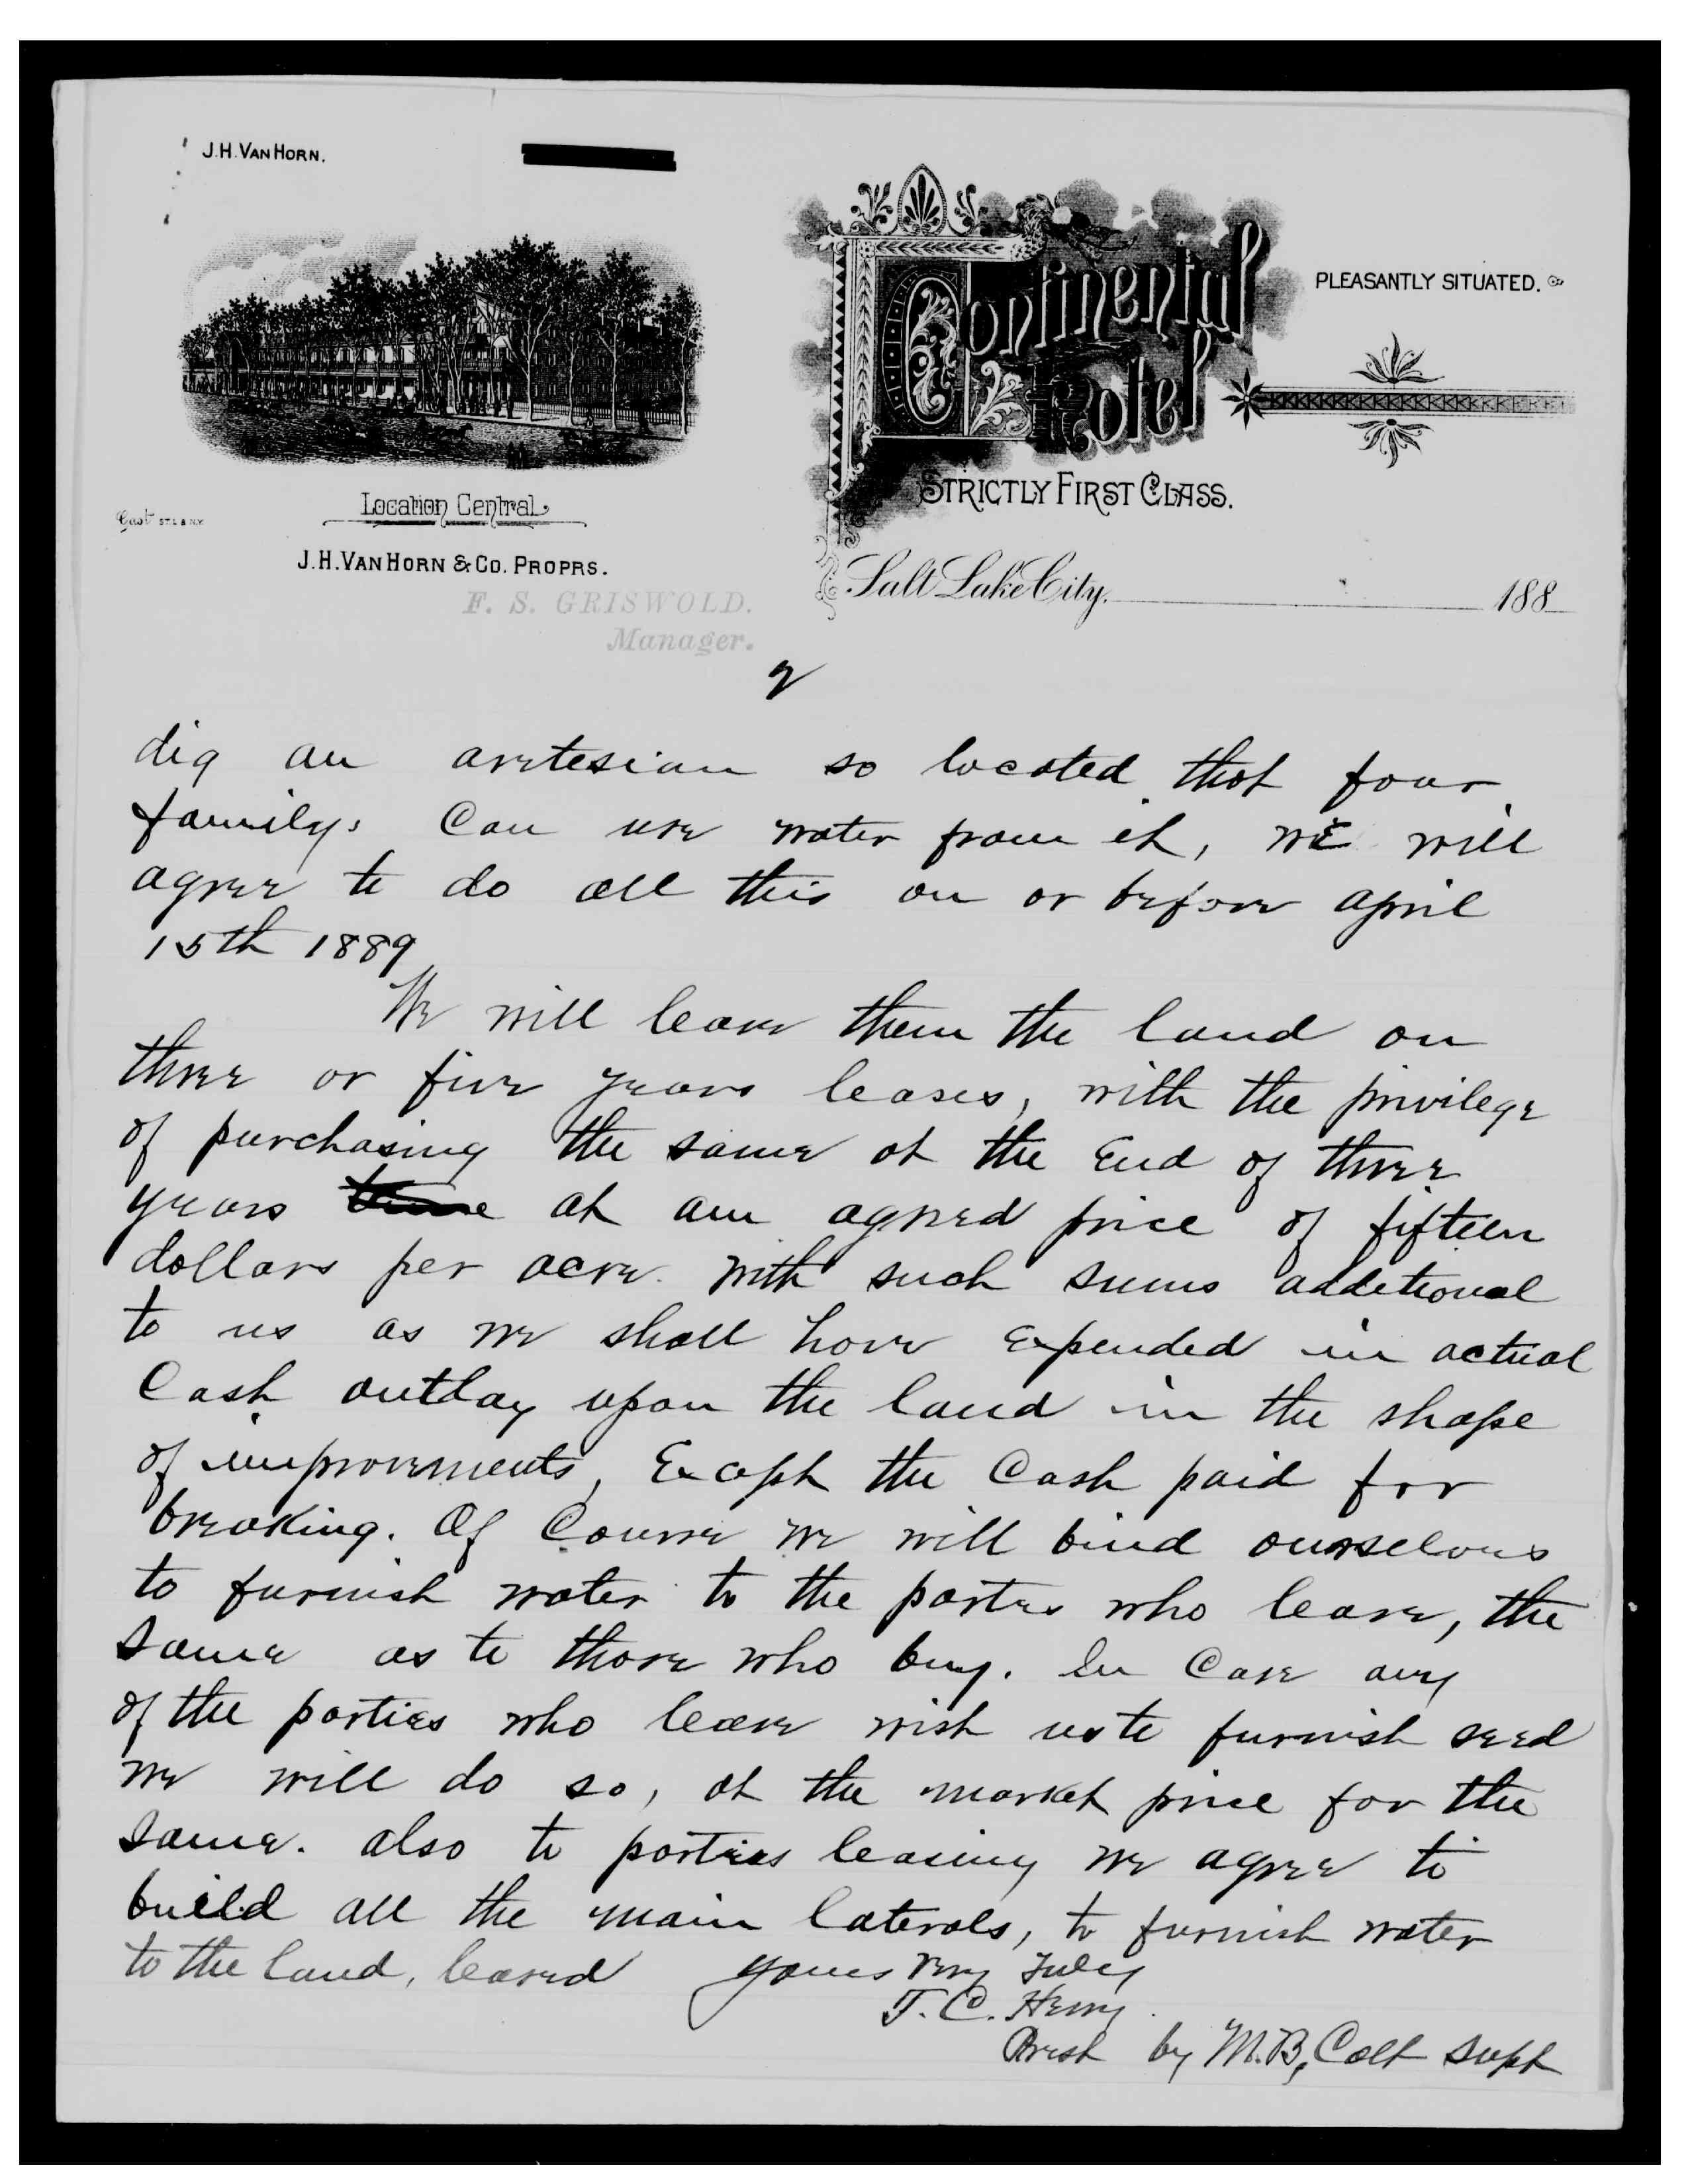 J.H. VAN HORN.
Continental
Hotel
PLEASANTLY SITUATED.
STRICTLY FIRST CLASS.
Location Central
J.H. VAN HORN & CO. PROPRS.
F. S. GRISWOLD.
Manager.
Salt Lake City. 188
2
dig an artesian so located that four
familys can use water from it, we will
agree to do all this on or before april
15th 1889
We will lease them the land on
three or five years leases, with the privilege
of purchasing the same at the end of three
years time at an agreed price of fifteen
dollars per acre. with such sums additional
to us as we shall have expended in actual
Cash outlay upon the land in the shape
of improvements, Except the Cash paid for
breaking. Of Course we will bind ourselves
to furnish water to the parties who lease, the
same as to those who buy. In Case any
of the parties who lease wish us to furnish seed
we will do so, at the market price for the
same. also to parties leasing we agree to
build all the main laterals, to furnish water
to the land, leased yours very truly
T. C. Henry
Prest by M. B, Colt Supt